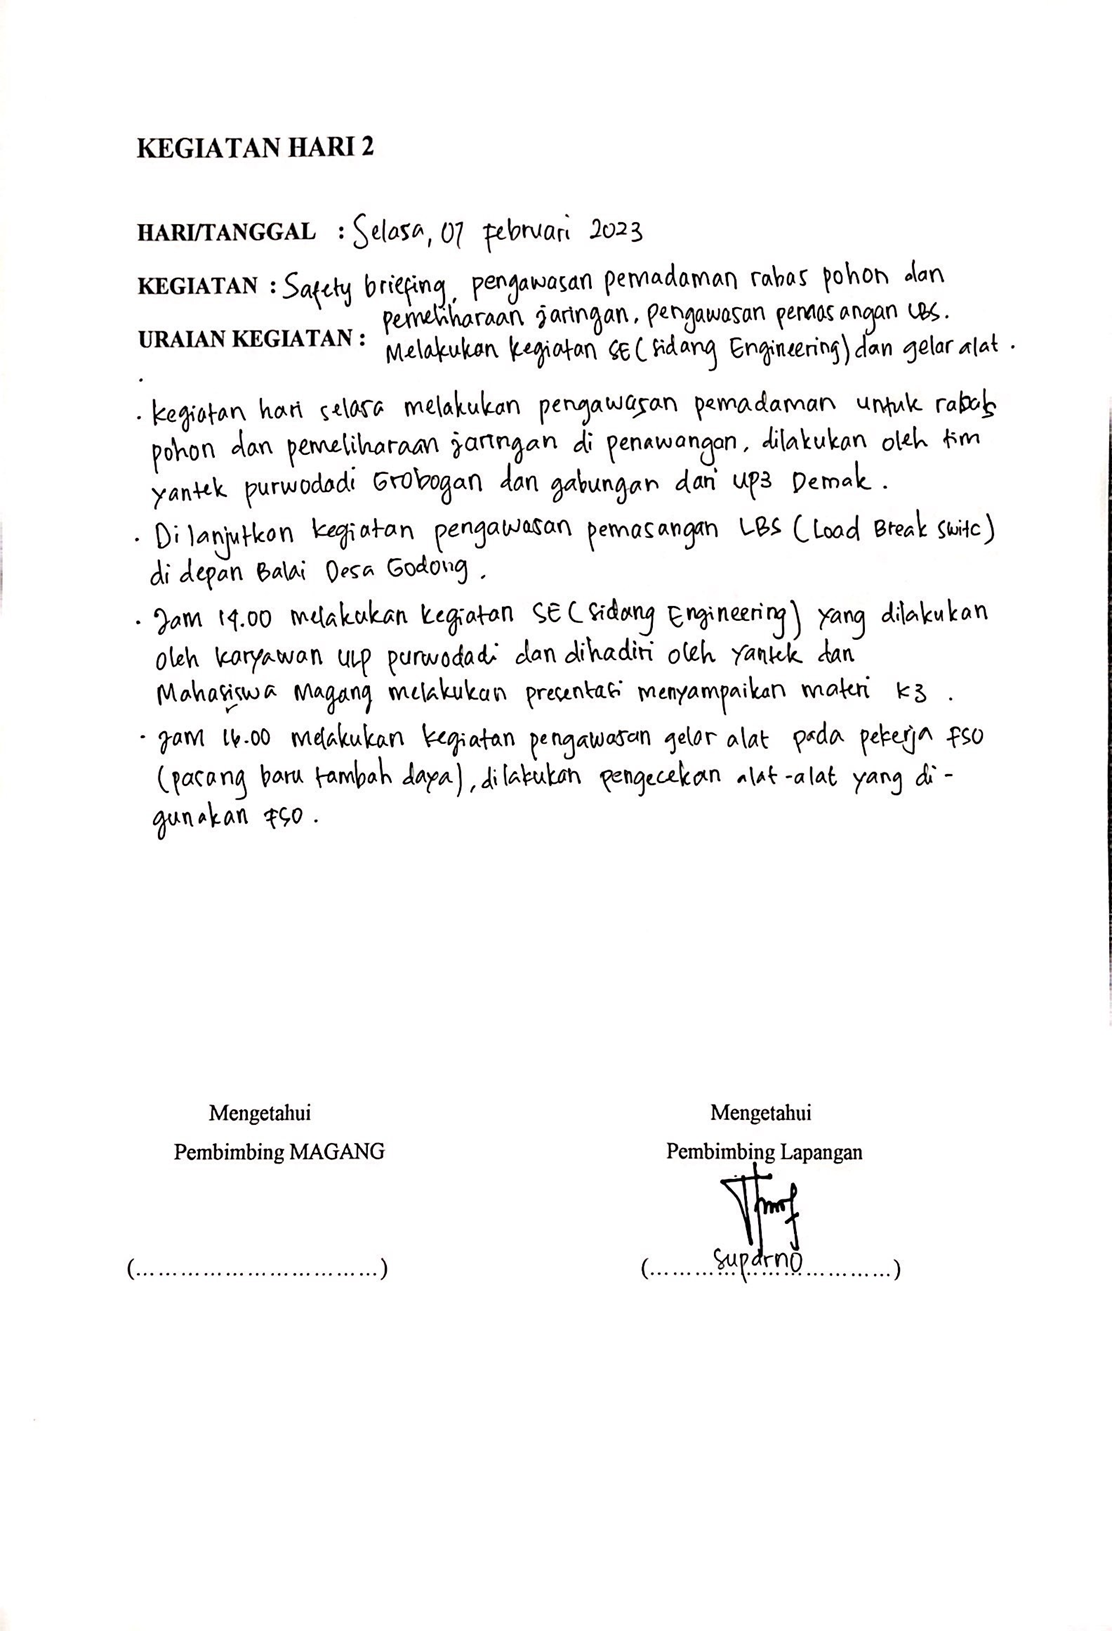 KEGIATAN HARI 2
HARI/TANGGAL : Selasa, 07 Februari 2023
KEGIATAN : Safety briefing, pengawasan pemadaman rabas pohon dan
pemeliharaan jaringan, pengawasan pemasangan LBS.
URAIAN KEGIATAN :
Melakukan kegiatan SE (Sidang Engineering) dan gelar alat.
.
· kegiatan hari selasa melakukan pengawasan pemadaman untuk rabas
pohon dan pemeliharaan jaringan di penawangan, dilakukan oleh tim
yantek purwodadi Grobogan dan gabungan dari UP3 Demak.
· Dilanjutkan kegiatan pengawasan pemasangan LBS (Load Break Switc)
di depan Balai Desa Godong.
· Jam 14.00 melakukan kegiatan SE (Sidang Engineering) yang dilakukan
oleh karyawan ULP purwodadi dan dihadiri oleh Yantek dan
Mahasiswa Magang melakukan presentasi menyampaikan materi K3.
· Jam 16.00 melakukan kegiatan pengawasan gelar alat pada pekerja FSO
(pasang baru tambah daya), dilakukan pengecekan alat-alat yang di-
gunakan FSO.
Mengetahui
Pembimbing MAGANG
(................................)
Mengetahui
Pembimbing Lapangan
(................................)
Suparno